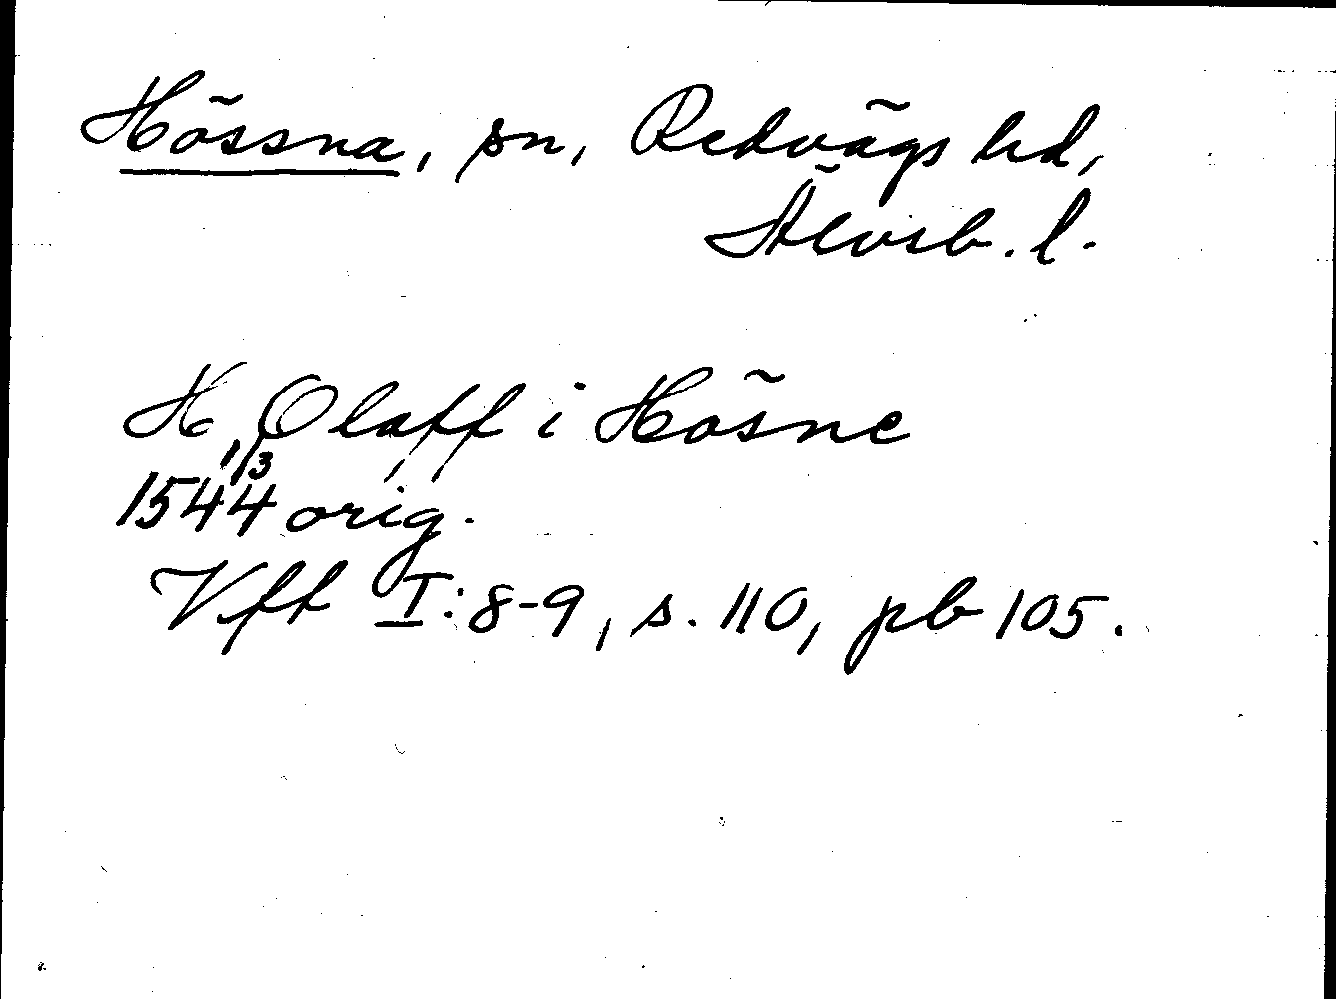 Hössna, sn, Redvägs hd,
Älvsb. l.
H. Olaff i Hösne
1544 1/3 orig.
Vff I:8-9, s. 110, pb 105.